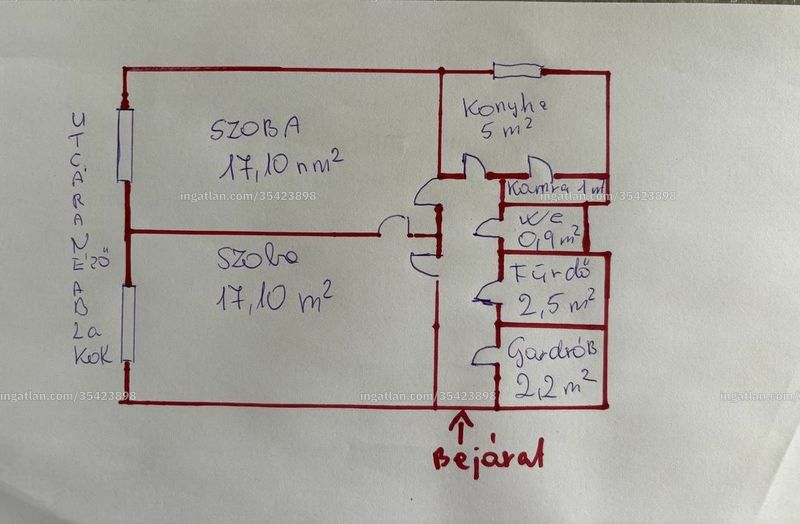 UTCÁRA NÉZŐ ABLaKOK
SZOBA
17,10 nm²
Konyha
5 m²
Kamra 1 m
WC
0,9 m²
SZoba
17,10 m²
Fürdő
2,5 m²
GardróB
2,2 m²
Bejárat
ingatlan.com/35423898
ingatlan.com/35423898
ingatlan.com/35423898
ingatlan.com/35423898
ingatlan.com/35423898